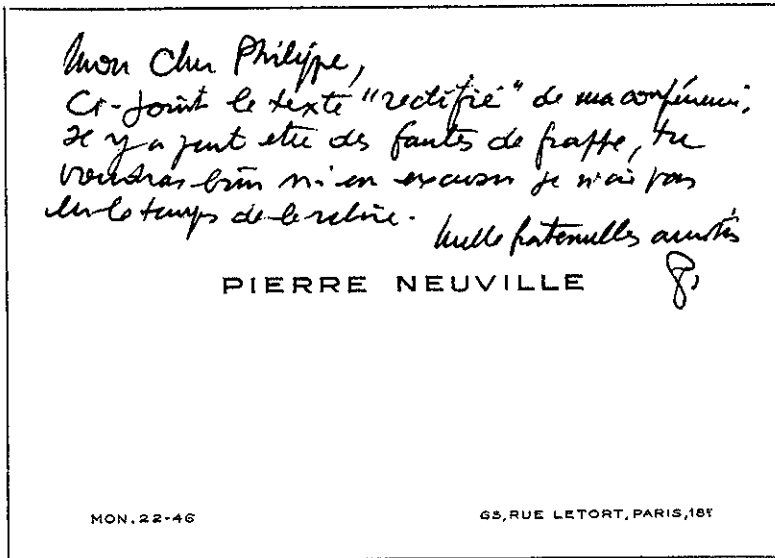 Mon Cher Philippe,
Ci-joint le texte "rectifié" de ma conférence.
Il y a peut etre des fautes de frappe, tu
voudras bien m'en excuser je n'ai pas
eu le temps de le relire.
Mille fraternelles amitiés
P.
PIERRE NEUVILLE
MON. 22-46
65, RUE LETORT, PARIS, 18E